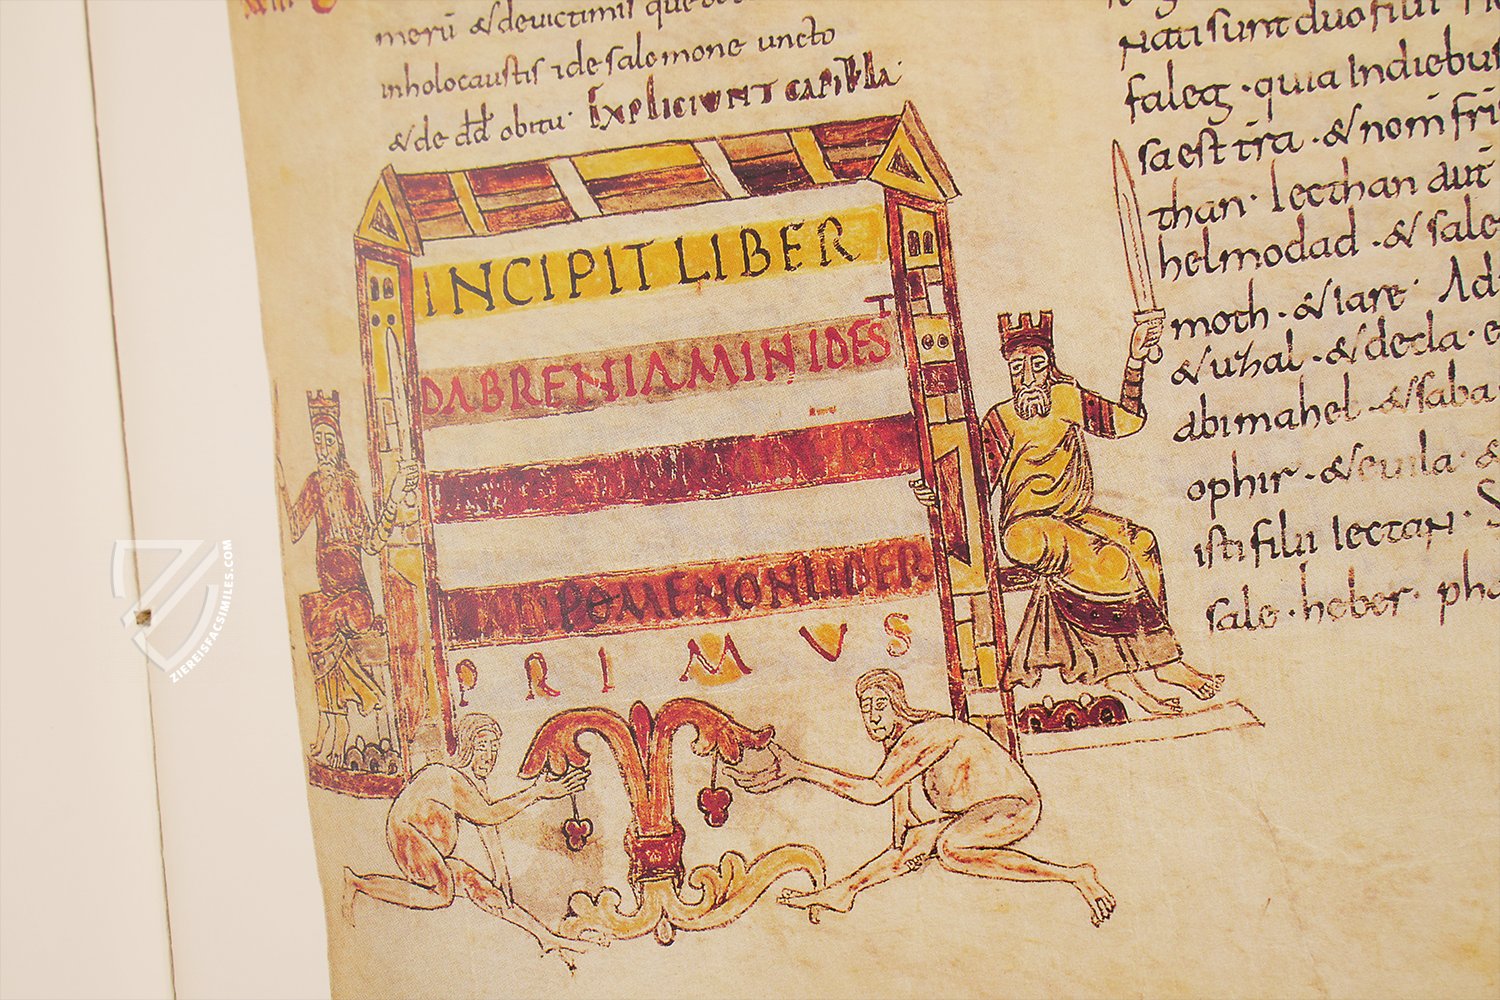 merū & de victimis que
in holocaustis & de salemone uncto
& de dd obitu. EXPLICIUNT CAPITULA.
INCIPIT LIBER
DABRENIAMIN IDEST
POMENON LIBER
PRIMUS
nati sunt duo filii
faleg. quia In diebus
sa est tra. & nom fri
than. Iecthan aut
helmodad. & sale
moth. & iare. Ad
& uzal. & decla. e
abimahel. & saba
ophir. & euila. &
isti filii Iectan. S
sale. heber. pha
ZIEREISFACSIMILES.COM